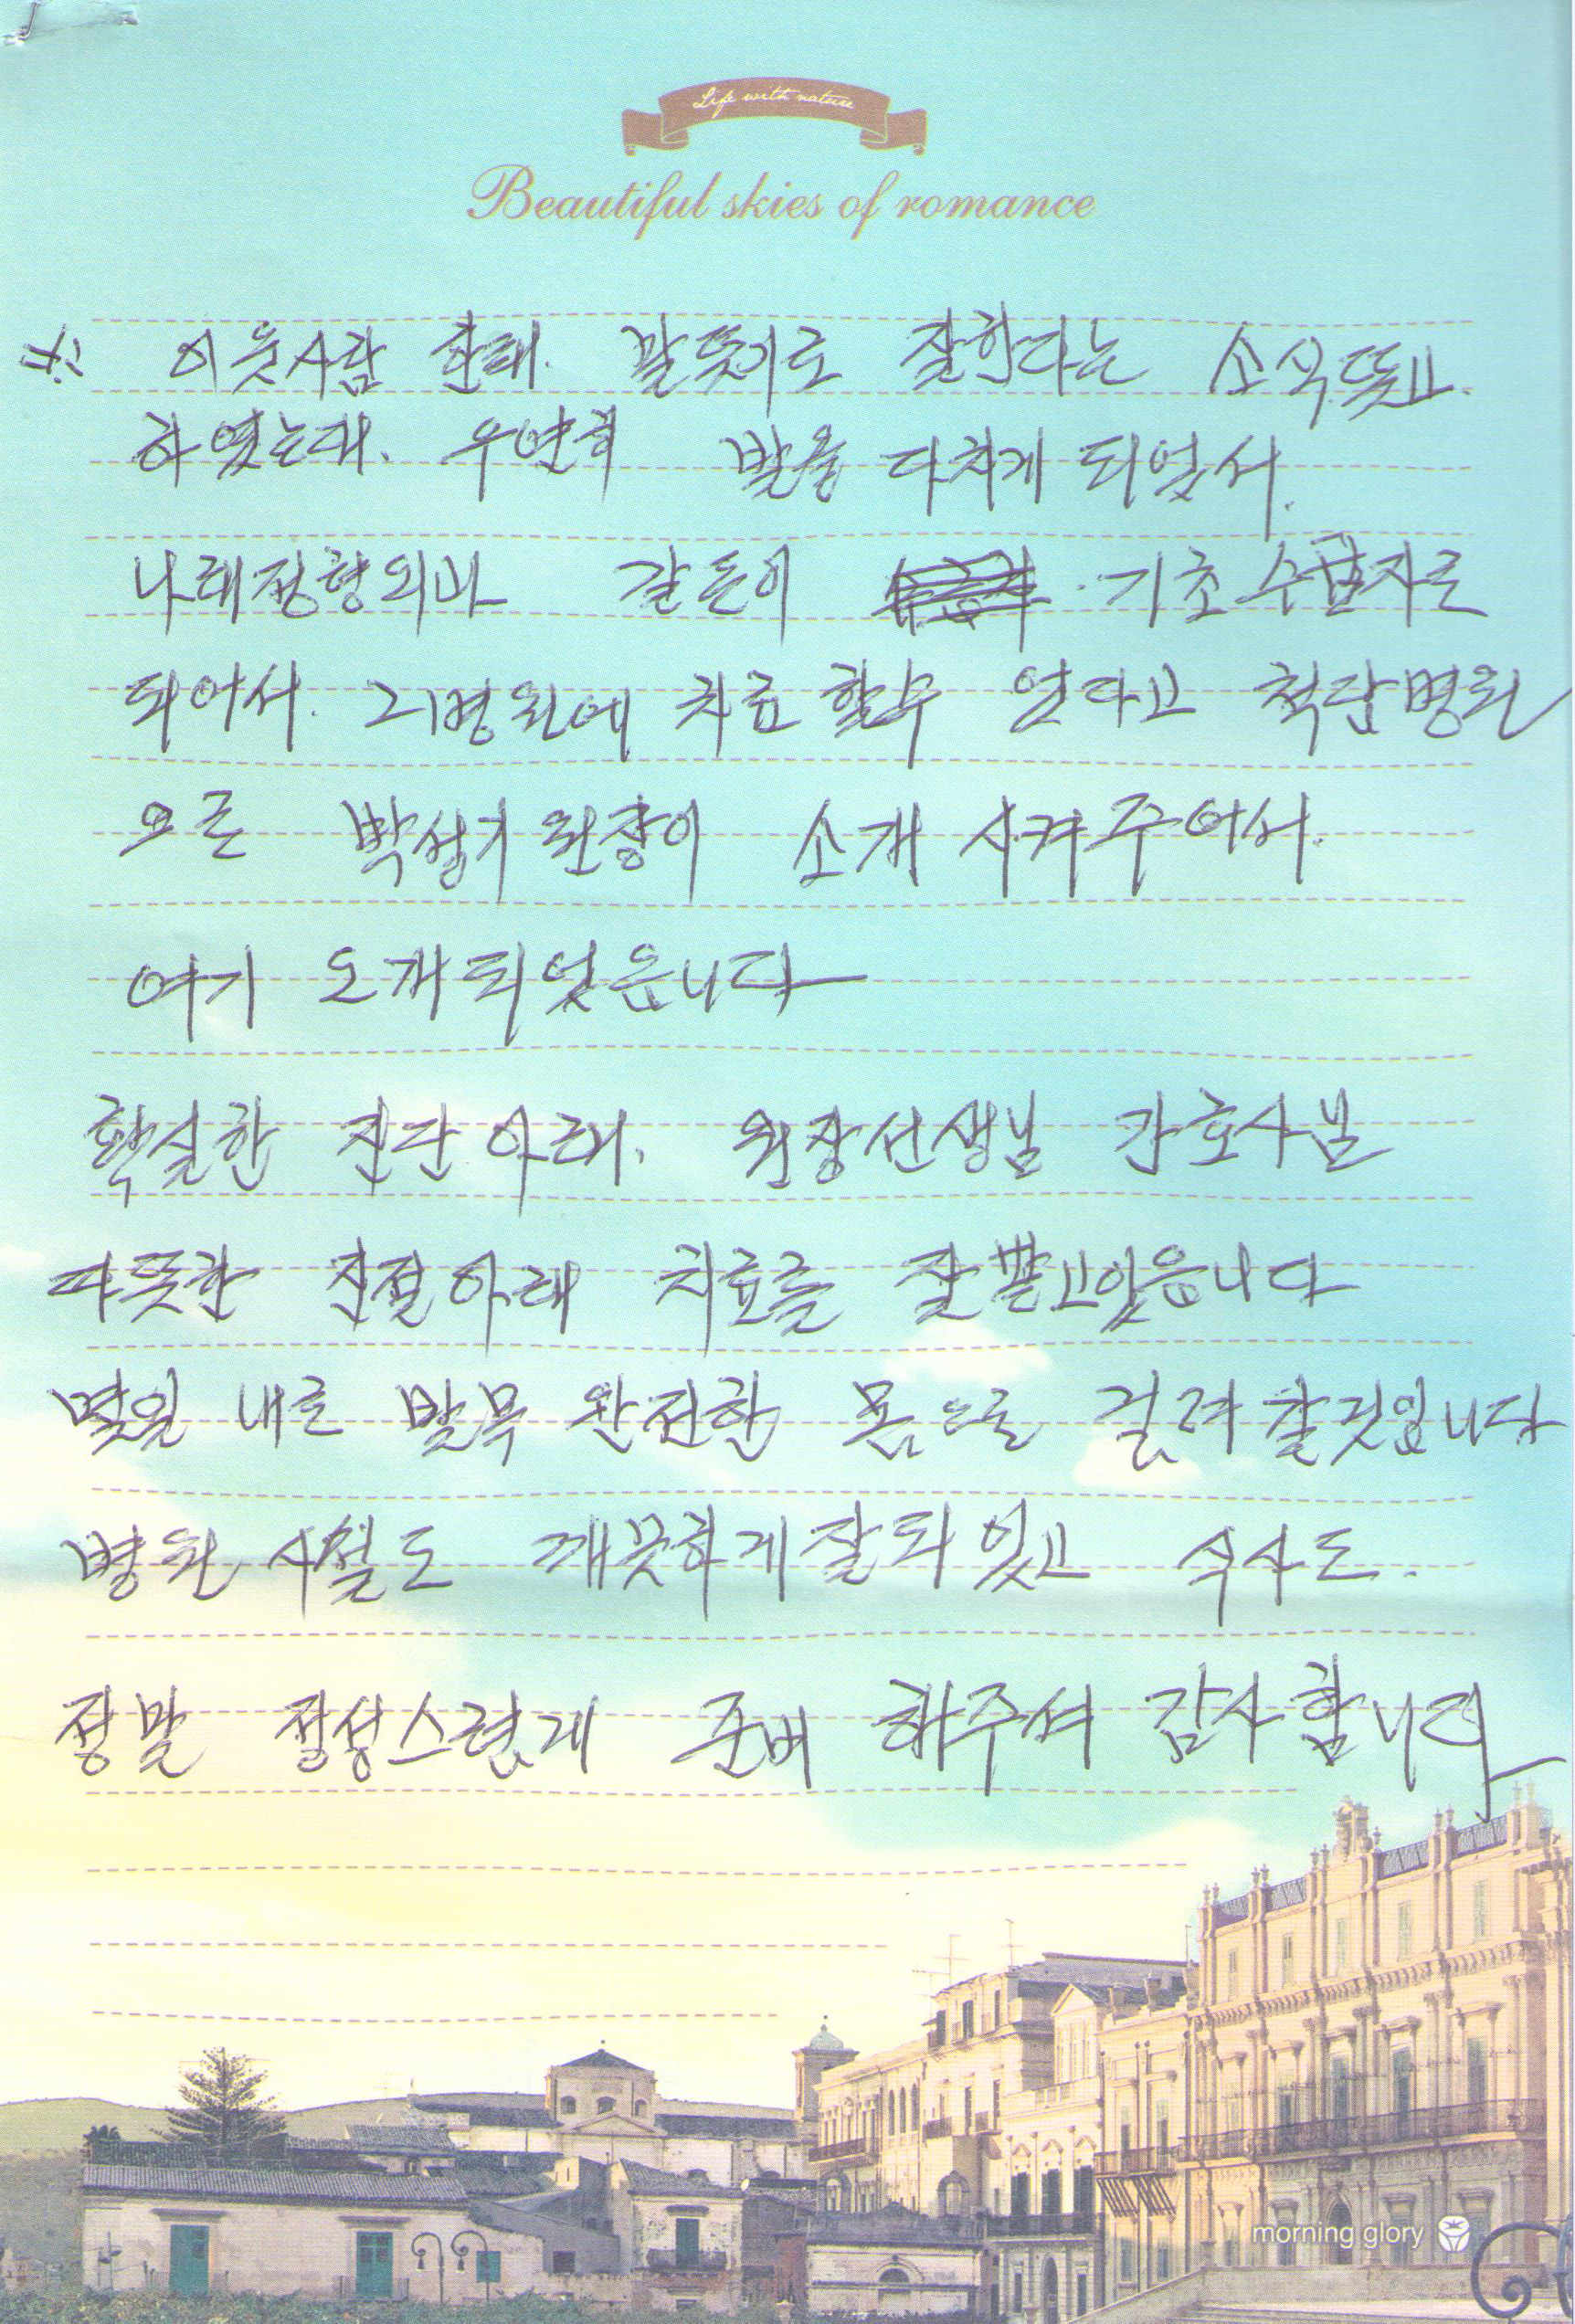 Life with nature
Beautiful skies of romance
※ 이웃사람 한태. 잘한다는
하였는대. 우연히 발을 다치게 되었서.
나래정형외과 기초수급자로
되어서. 그병원에 치료할수 없다고 척탑병원
으로 박성기원장이 소개 시켜주어서.
여기 오개되엇읍니다
확실한 진단아래. 원장선생님 간호사님
따뜻한 친절아래 치료를 잘 받고있읍니다
몇일 내로 발목 완전한 몸으로
병원 시설도 깨끗하게 잘되있고 식사도.
정말 정성스렵게 준비 해주셔 감사합니다
morning glory